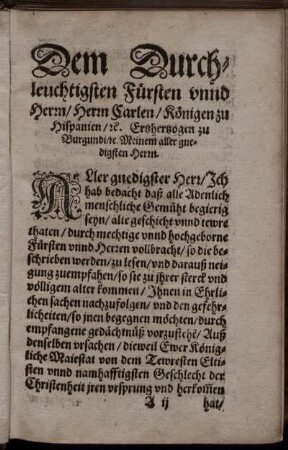 Dem Durch-
leuchtigsten Fürsten vnnd
Herrn/Herrn Carlen/Königen zu
Hispanien/ꝛc. Ertzhertzogen zu
Burgundi/ꝛc. Meinem aller gne-
digsten Herrn.
ALler gnedigster Herr/Ich
hab bedacht daß alle Adenlich
menschliche Gemüht begierig
seyn/alte geschicht vnnd tewre
thaten/durch mechtige vnnd hochgeborne
Fürsten vnnd Herren vollbracht/so die be-
schrieben werden/zu lesen/vnd darauß nei-
gung zuempfahen/so sie zu jhrer sterck vnd
völligem alter kommen/Ihnen in Ehrli-
chen sachen nachzufolgen/vnd den gefehr-
licheiten/so jnen begegnen möchten/durch
empfangene gedächtnüß vorzustehẽ/Auß
denselben vrsachen/dieweil Ewer König-
liche Maiestat von dem Tewresten Elti-
sten vnnd namhafftigsten Geschlecht der
Christenheit jren vrsprung vnd herkom̃en
A ij hat/